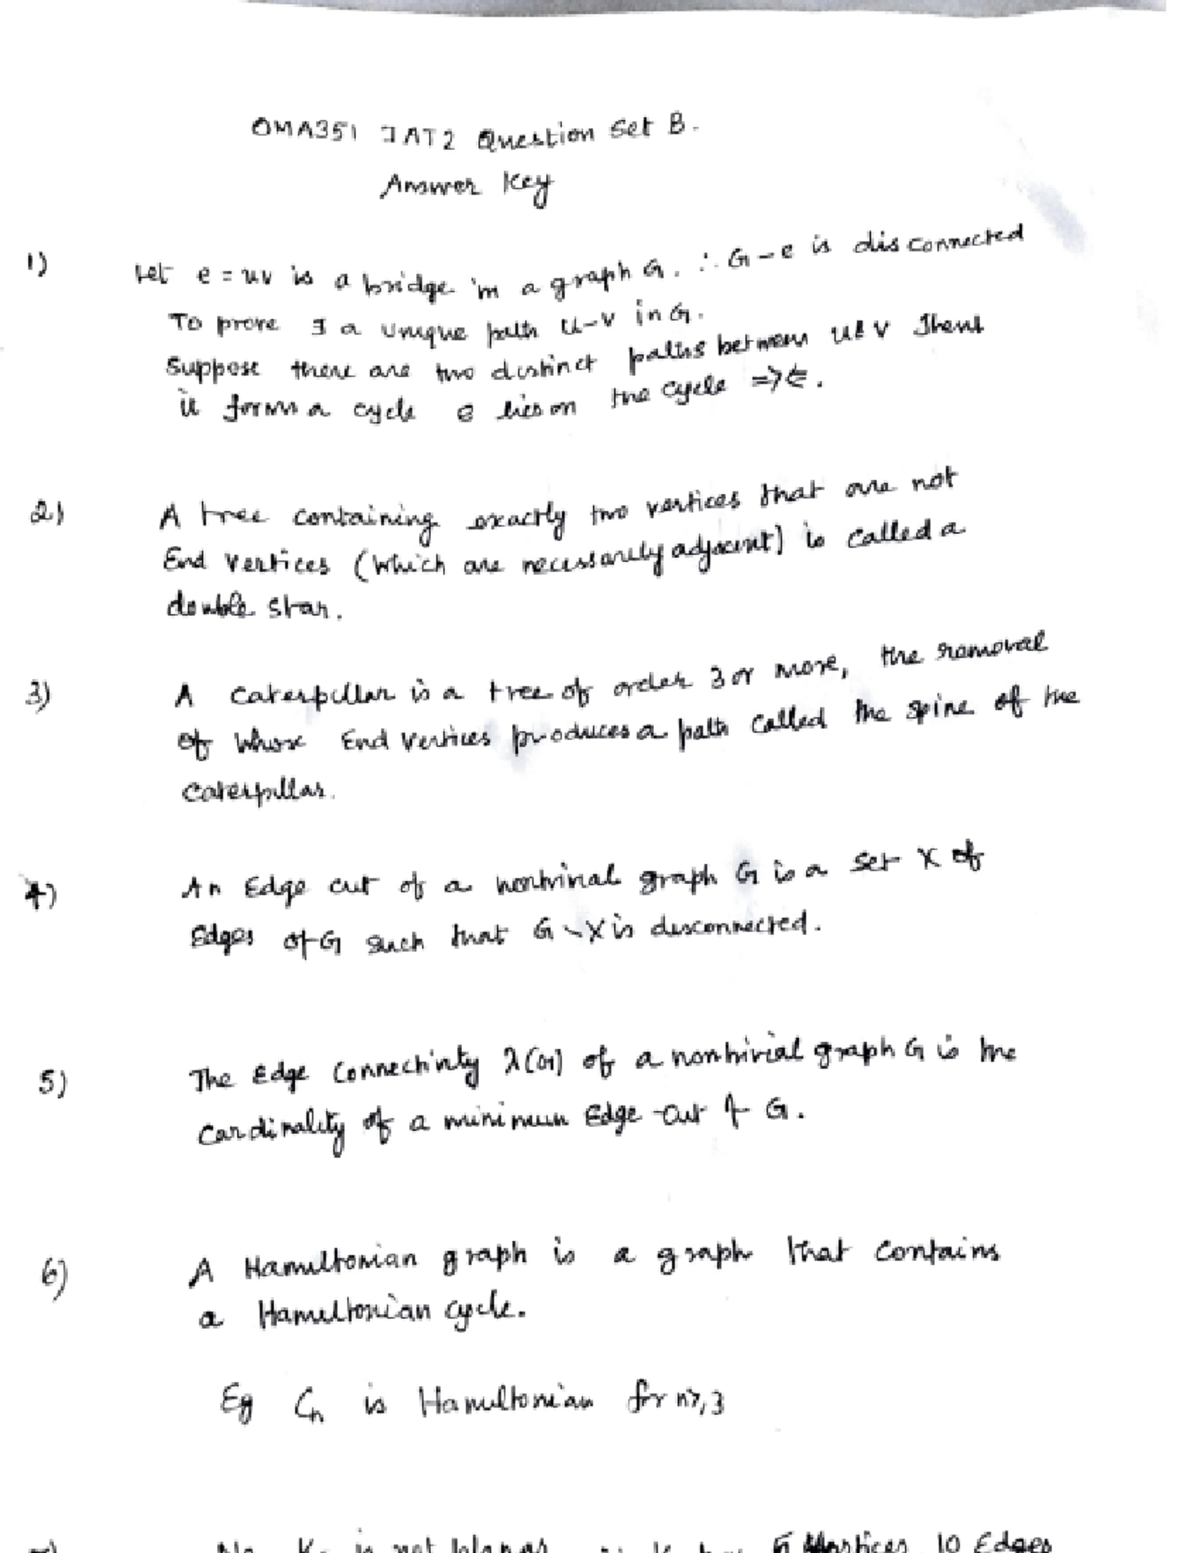 OMA351 IAT2 Question Set B.
Answer Key
1) Let e = uv is a bridge in a graph G. ∴ G-e is disconnected
To prove ∃ a unique path u-v in G.
Suppose there are two distinct paths between u & v then
it forms a cycle e lies on the cycle ⇒⇐.
2) A tree containing exactly two vertices that are not
End vertices (which are necessarily adjacent) is called a
double star.
3) A caterpillar is a tree of order 3 or more, the removal
of whose End vertices produces a path called the spine of the
caterpillar.
4) An Edge cut of a nontrivial graph G is a set X of
Edges of G such that G-X is disconnected.
5) The Edge Connectivity λ(G) of a nontrivial graph G is the
Cardinality of a minimum Edge-cut of G.
6) A Hamiltonian graph is a graph that contains
a Hamiltonian cycle.
Eg Cn is Hamiltonian for n≥3
No is not 5 vertices 10 Edges